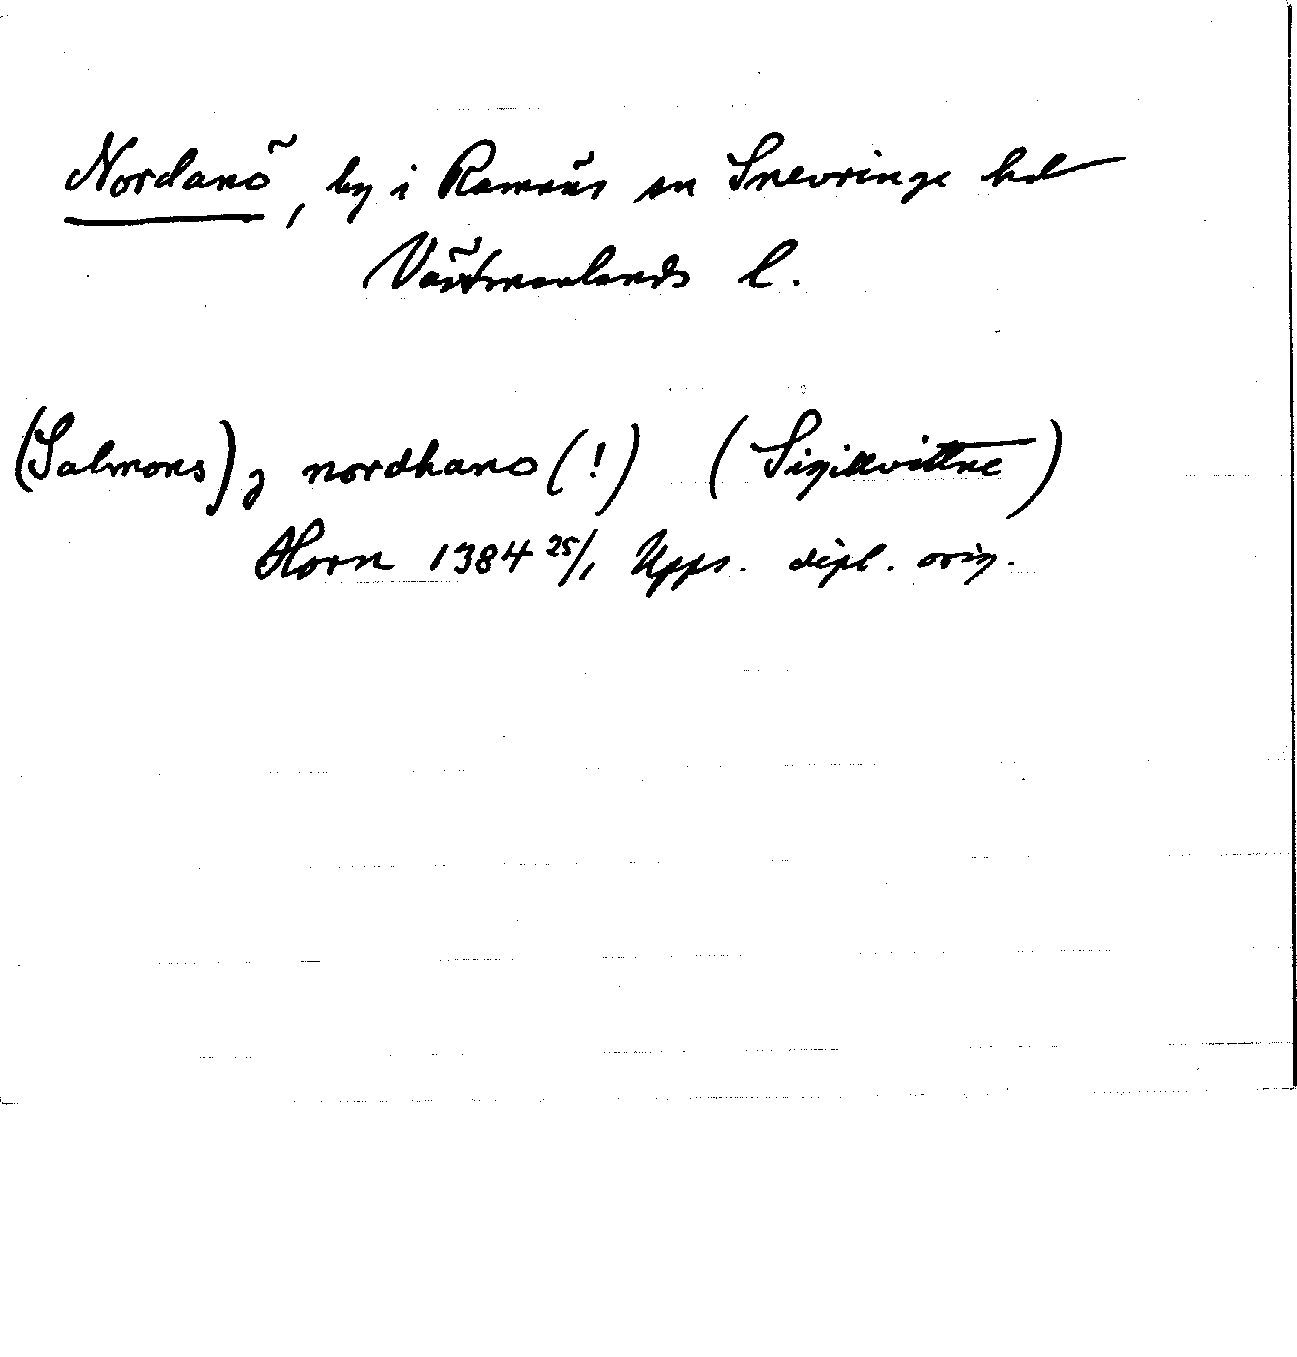 Nordanö, by i Ramnäs sn Snevringe hd
Västmanlands l.
(Salmons) j nordhano (!) (Sigillvittne)
Horn 1384 25/1 Upps. dipl. orig.